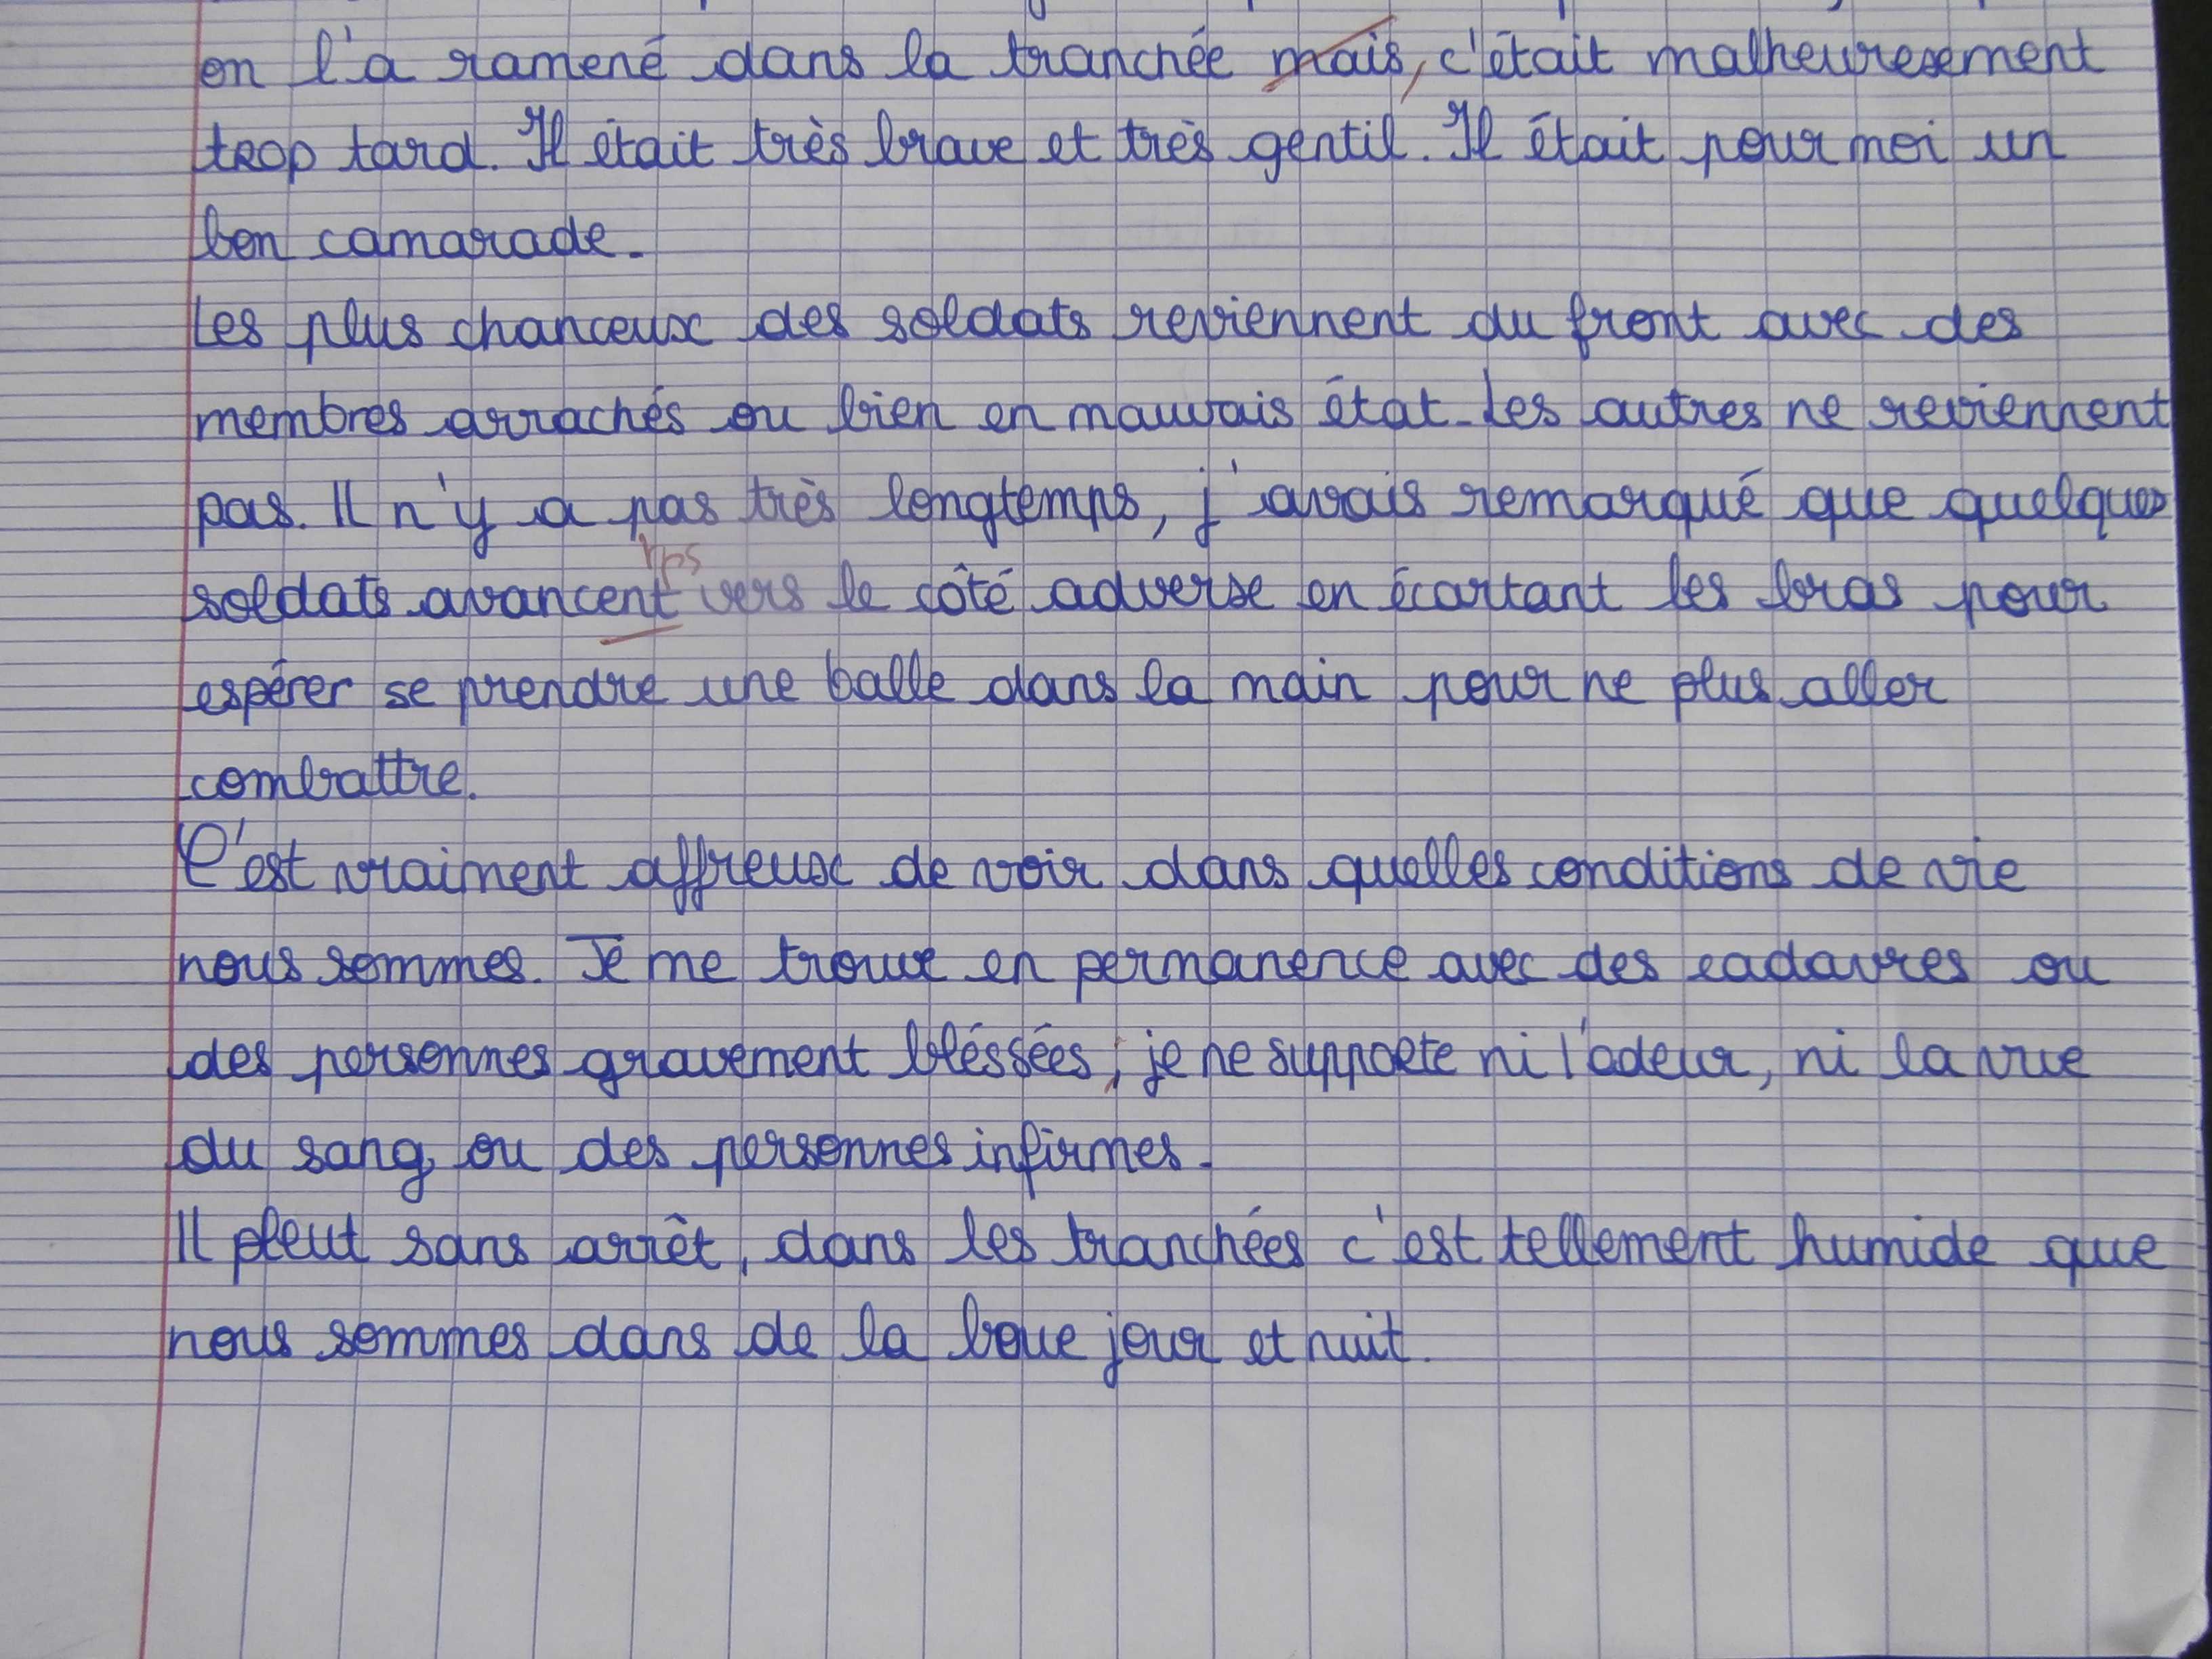 on l'a ramené dans la tranchée mais, c'était malheuresement
trop tard. Il était très brave et très gentil. Il était pour moi un
bon camarade.
Les plus chanceux des soldats reviennent du front avec des
membres arrachés ou bien en mauvais état. Les autres ne reviennent
pas. Il n'y a pas très longtemps, j'avais remarqué que quelques
tps
soldats avancent vers le côté adverse en écartant les bras pour
espérer se prendre une balle dans la main pour ne plus aller
combattre.
C'est vraiment affreux de voir dans quelles conditions de vie
nous sommes. Je me trouve en permanence avec des cadavres ou
des personnes gravement bléssées, je ne supporte ni l'odeur, ni la vue
du sang ou des personnes infirmes.
Il pleut sans arrêt, dans les tranchées c'est tellement humide que
nous sommes dans de la boue jour et nuit.